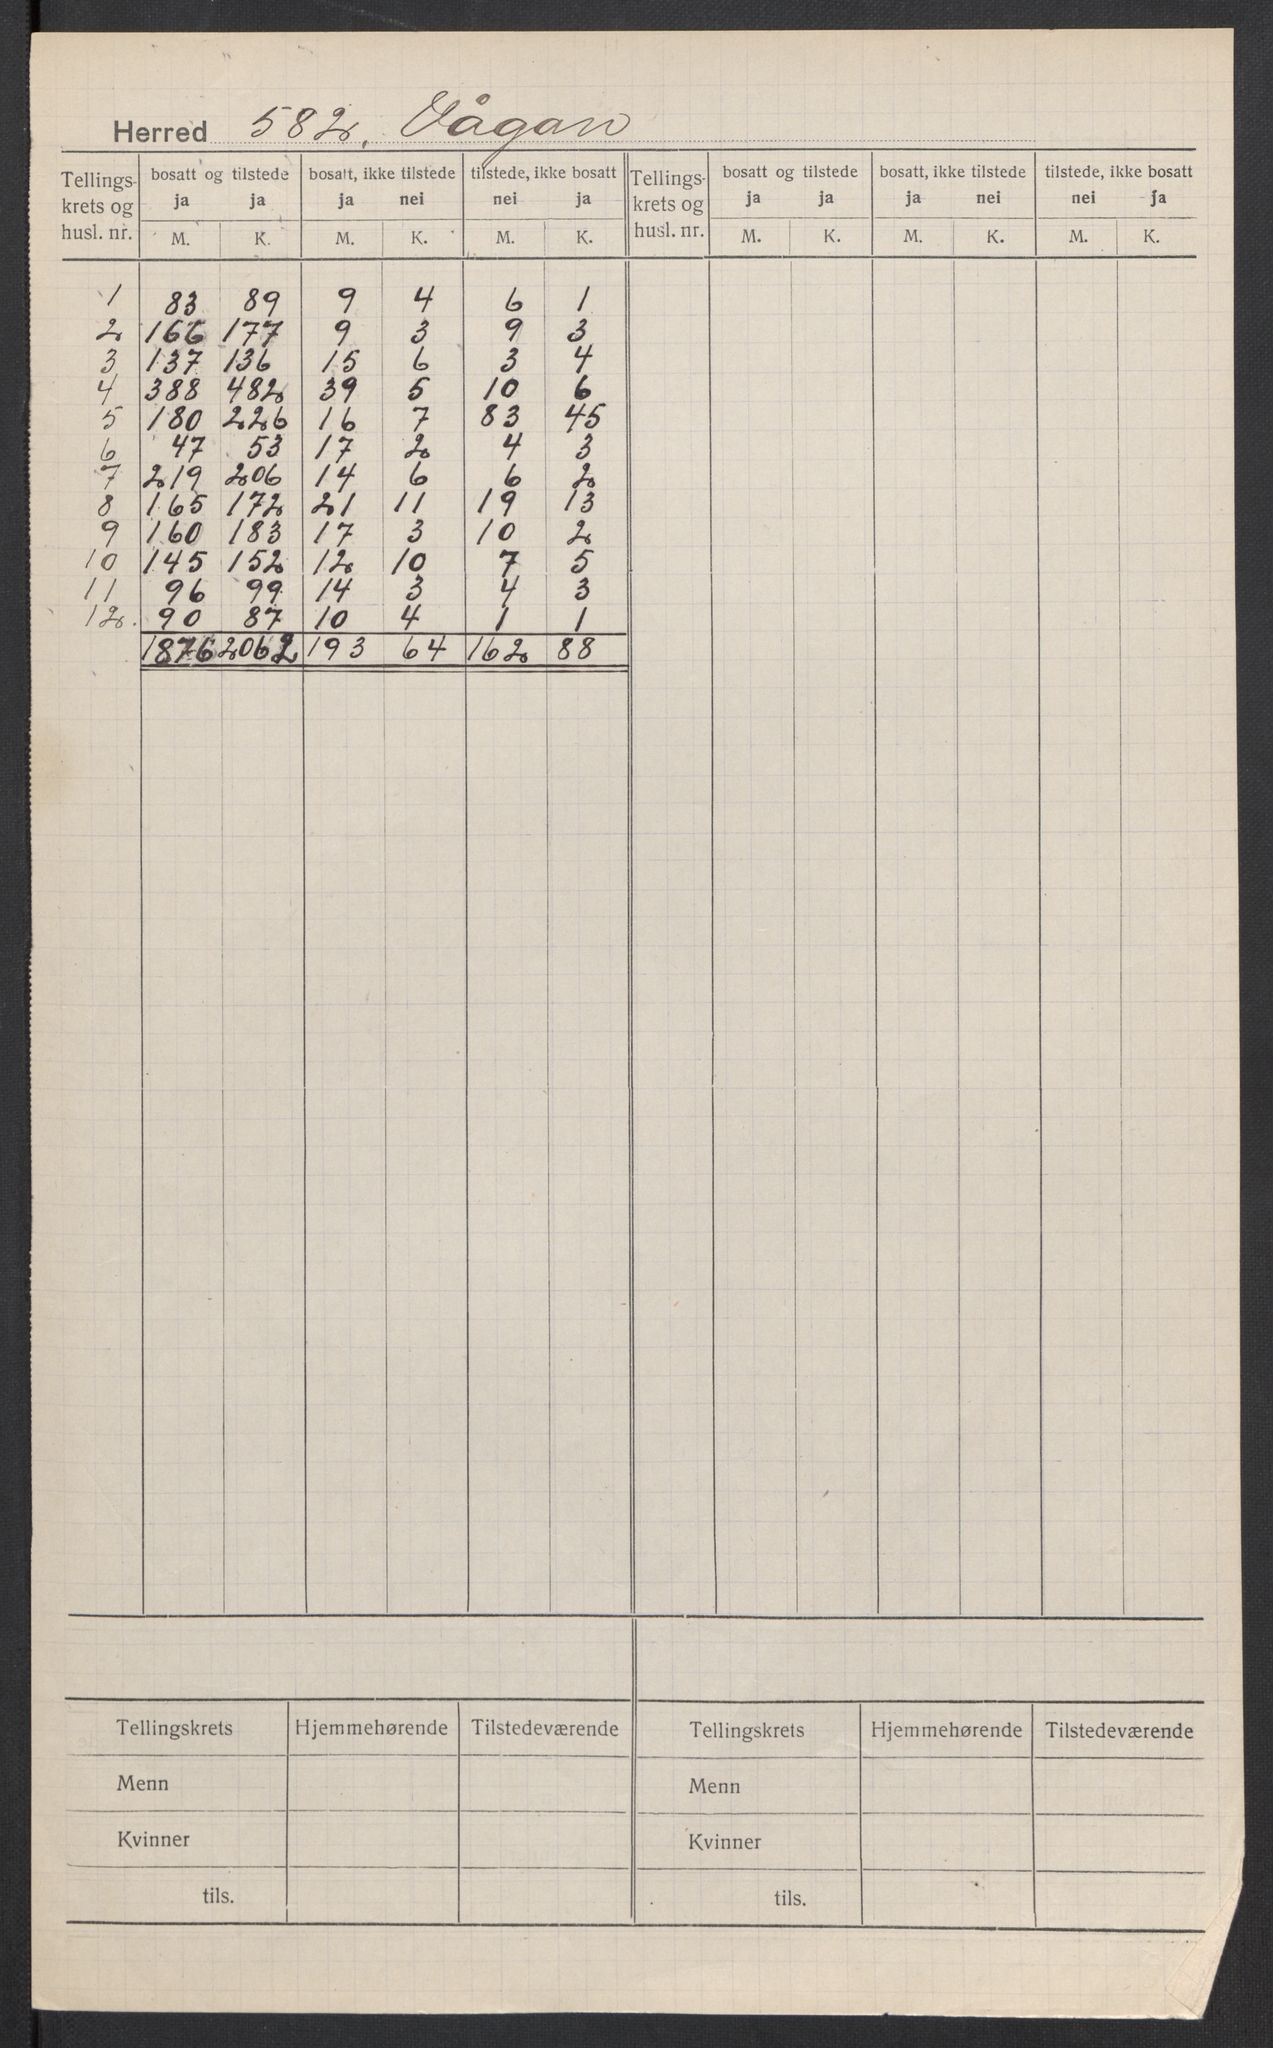 Herred 582, Vågan
Tellings- krets og husl. nr. | bosatt og tilstede | bosatt, ikke tilstede | tilstede, ikke bosatt | Tellings- krets og husl. nr. | bosatt og tilstede | bosatt, ikke tilstede | tilstede, ikke bosatt
ja ja ja nei nei ja ja ja ja nei nei ja
M. K. M. K. M. K. M. K. M. K. M. K.
1 83 89 9 4 6 1
2 166 177 9 3 9 3
3 137 136 15 6 3 4
4 388 482 39 5 10 6
5 180 226 16 7 83 45
6 47 53 17 2 4 3
7 219 206 14 6 6 2
8 165 172 21 11 19 13
9 160 183 17 3 10 2
10 145 152 12 10 7 5
11 96 99 14 3 4 3
12. 90 87 10 4 1 1
1876 2062 193 64 162 88
Tellingskrets Hjemmehørende Tilstedeværende Tellingskrets Hjemmehørende Tilstedeværende
Menn Menn
Kvinner Kvinner
tils. tils.